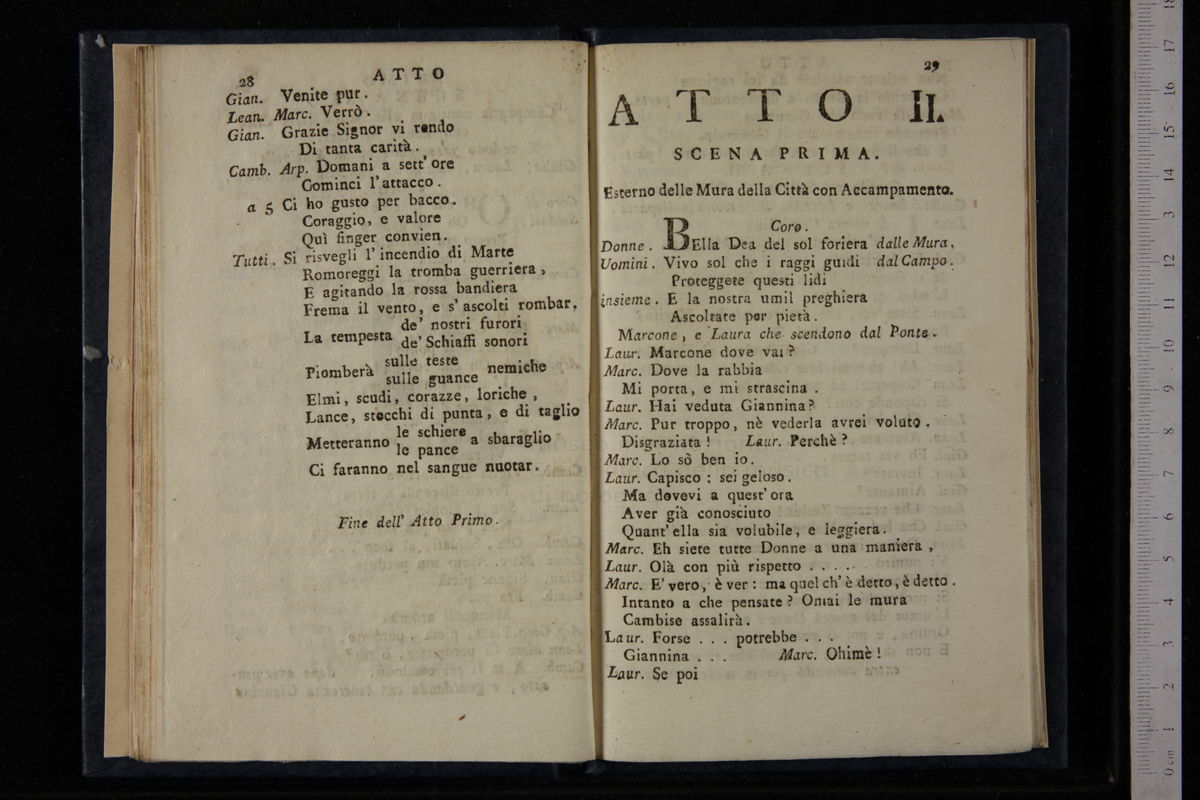 28
ATTO
Gian. Venite pur.
Lean. Marc. Verrò.
Gian. Grazie Signor vi rendo
Di tanta carità.
Camb. Arp. Domani a sett' ore
Cominci l'attacco.
a 5 Ci ho gusto per bacco.
Coraggio, e valore
Quì finger convien.
Tutti. Si risvegli l'incendio di Marte
Romoreggi la tromba guerriera,
E agitando la rossa bandiera
Frema il vento, e s'ascolti rombar,
La tempesta de' nostri furori
de' Schiaffi sonori
Piomberà sulle teste nemiche
sulle guance
Elmi, scudi, corazze, loriche,
Lance, stocchi di punta, e di taglio
Metteranno le schiere a sbaraglio
le pance
Ci faranno nel sangue nuotar.
Fine dell' Atto Primo.
29
ATTO II.
SCENA PRIMA.
Esterno delle Mura della Città con Accampamento.
Coro.
Donne. BElla Dea del sol foriera dalle Mura.
Uomini. Vivo sol che i raggi guidi dal Campo.
Proteggete questi lidi
insieme. E la nostra umil preghiera
Ascoltate per pietà.
Marcone, e Laura che scendono dal Ponte.
Laur. Marcone dove vai?
Marc. Dove la rabbia
Mi porta, e mi strascina.
Laur. Hai veduta Giannina?
Marc. Pur troppo, nè vederla avrei voluto.
Disgraziata! Laur. Perchè?
Marc. Lo sò ben io.
Laur. Capisco: sei geloso.
Ma dovevi a quest' ora
Aver già conosciuto
Quant' ella sia volubile, e leggiera.
Marc. Eh siete tutte Donne a una maniera,
Laur. Olà con più rispetto . . . . .
Marc. E' vero, è ver: ma quel ch' è detto, è detto.
Intanto a che pensate? Omai le mura
Cambise assalirà.
Laur. Forse . . . potrebbe . . .
Giannina . . . Marc. Ohimè!
Laur. Se poi